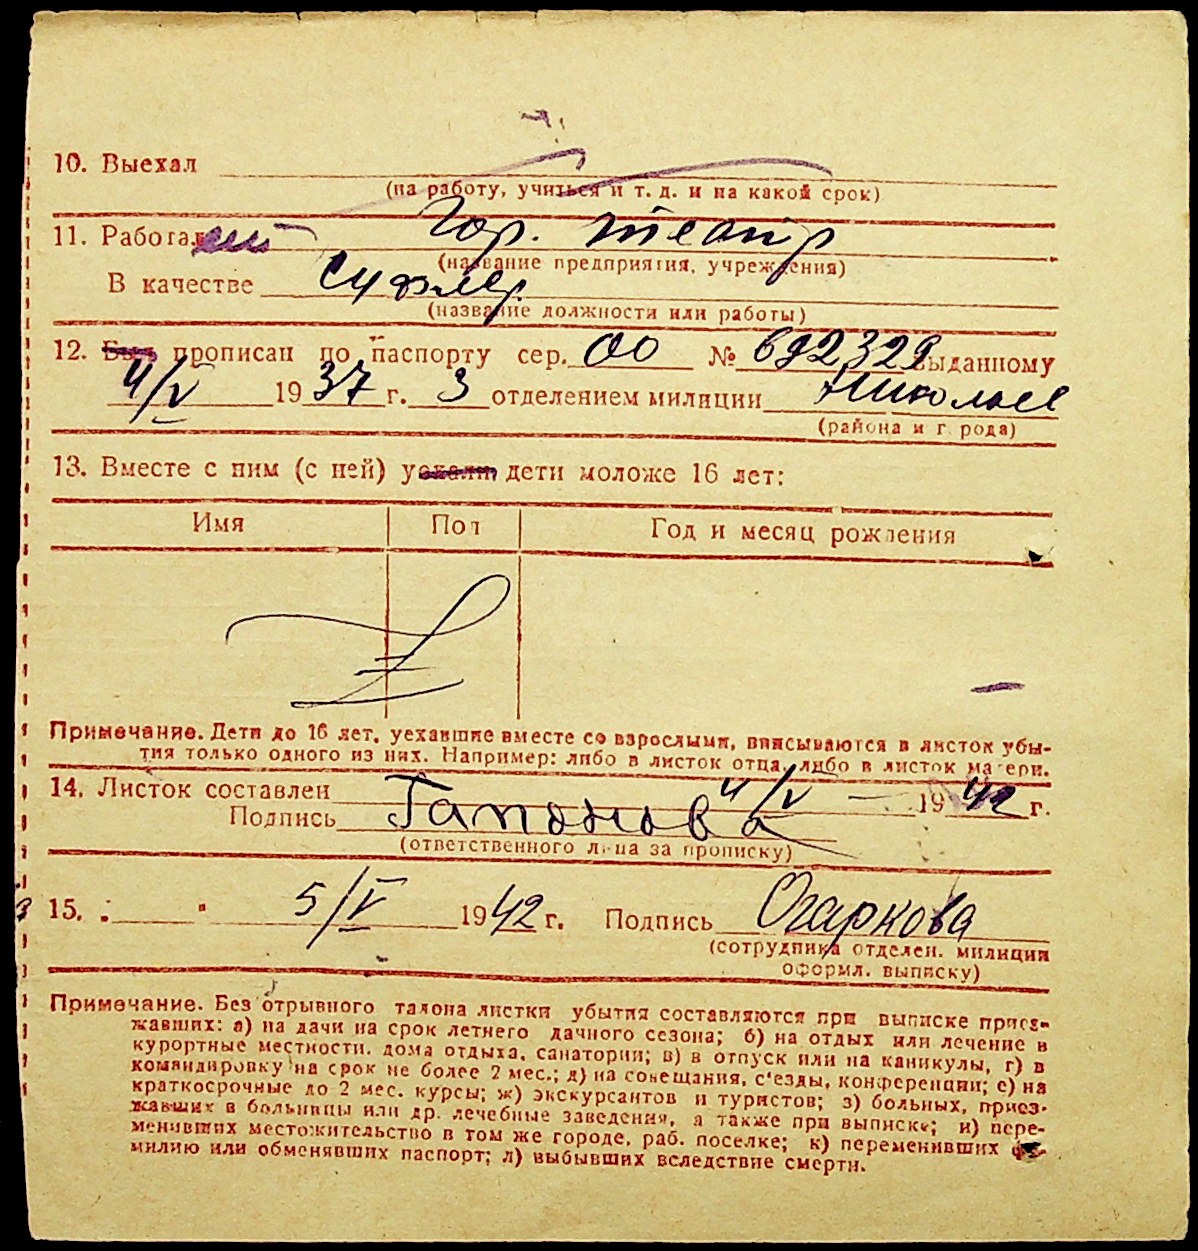 10. Выехал
(на работу, учиться и т. д. и на какой срок)
11. Работает Гор. театр
(название предприятия, учреждения)
В качестве Суфлер
(название должности или работы)
12. Быть прописан по паспорту сер. ОО № 692329 выданному
4/V 1937 г. 3 отделением милиции г. Николаев
(района и г рода)
13. Вместе с ним (с ней) уехали дети моложе 16 лет:
Имя Пол Год и месяц рождения
Примечание. Дети до 16 лет, уехавшие вместе со взрослыми, вписываются в листок убы-
тия только одного из них. Например: либо в листок отца, либо в листок матери.
14. Листок составлен 4/V — 1942 г.
Подпись Гапонова
(ответственного лица за прописку)
15. " " 5/V 1942 г. Подпись Огаркова
(сотрудника отделен. милиции
оформл. выписку)
Примечание. Без отрывного талона листки убытия составляются при выписке приез-
жавших: а) на дачи на срок летнего дачного сезона; б) на отдых или лечение в
курортные местности, дома отдыха, санатории; в) в отпуск или на каникулы, г) в
командировку на срок не более 2 мес.; д) на совещания, с'езды, конференции; е) на
краткосрочные до 2 мес. курсы; ж) экскурсантов и туристов; з) больных, приез-
жавших в больницы или др. лечебные заведения, а также при выписке; и) пере-
менивших местожительство в том же городе, раб. поселке; к) переменивших фа-
милию или обменявших паспорт; л) выбывших вследствие смерти.